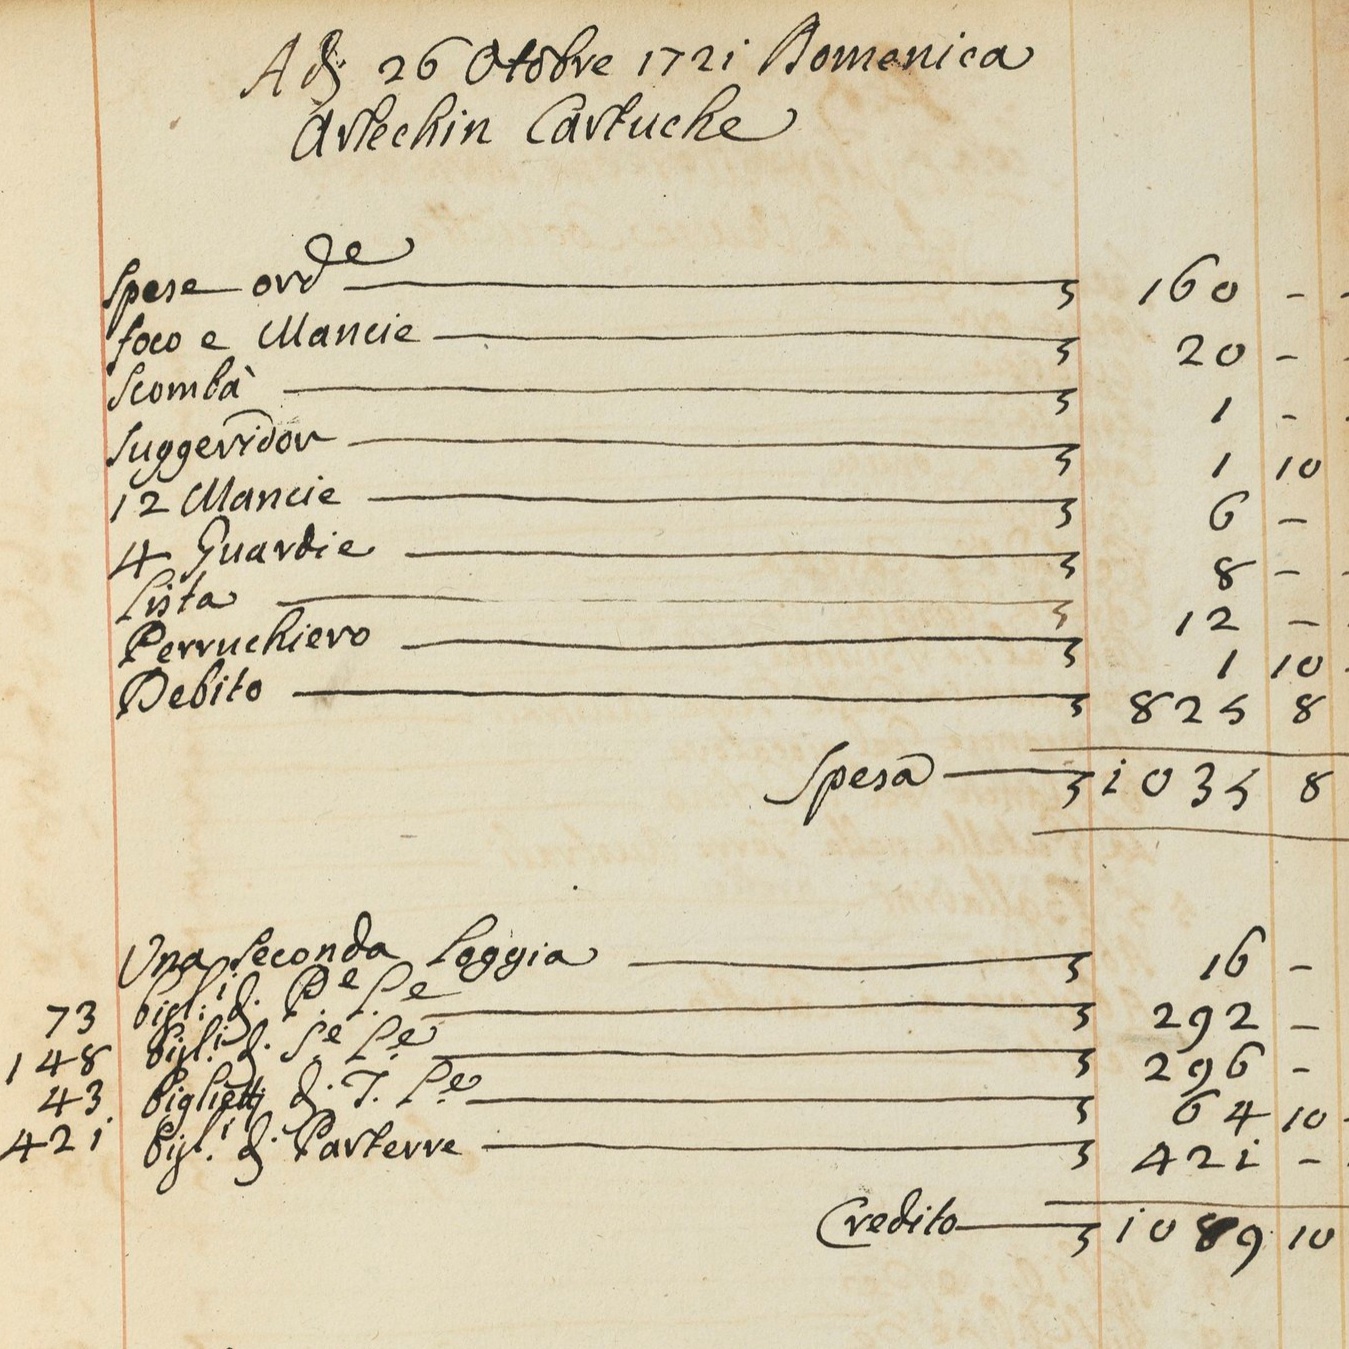 Adj 26 Otobre 1721 Domenica
Arlechin Cartuche
Spese ord.e 160 - -
foco e Mancie 20 -
Scombà 1 - -
Suggeridor 1 10
12 Mancie 6 -
4 Guardie 8 - -
Lista 12 -
Perruchiero 1 10 -
Debito 825 8
Spesa 1035 8
Una Seconda Loggia 16 -
73 bigl:i d. P.e L.e 292 -
148 bigl:i d. S.e L.e 296 -
43 biglietti d. T. L.e 64 10 -
421 bigl:i d. Parterre 421 - -
Credito 1089 10